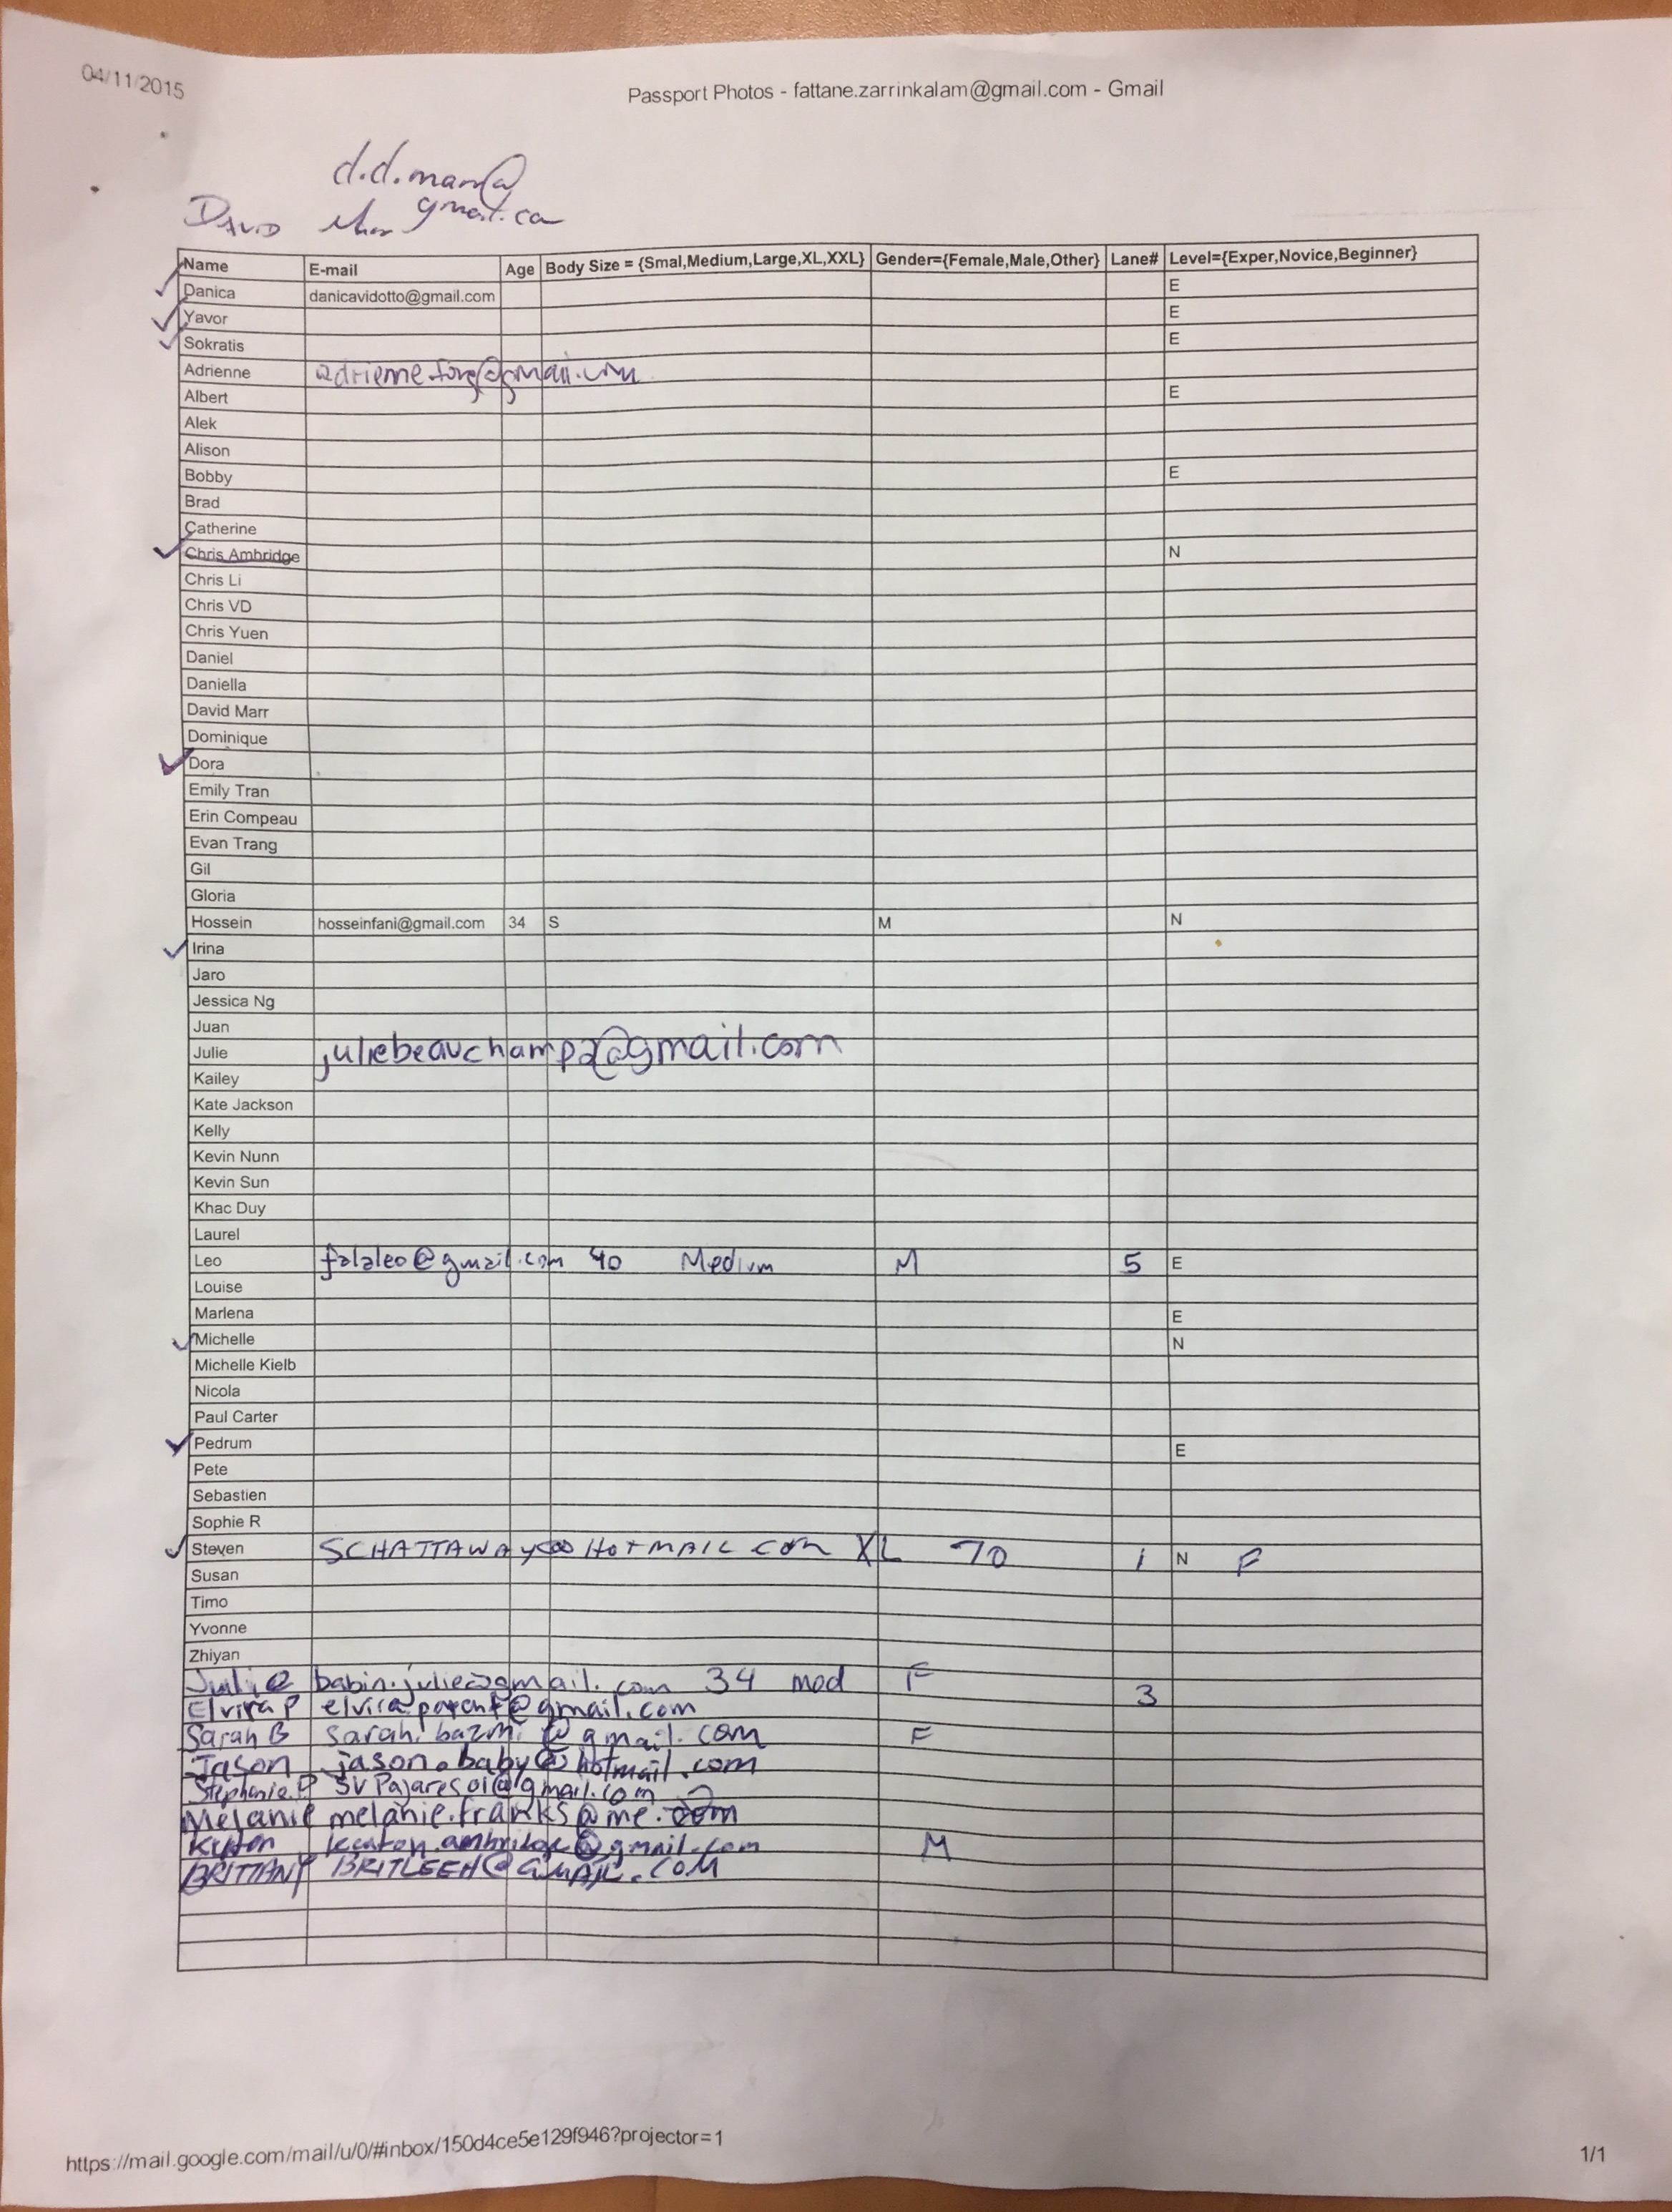 04/11/2015
Passport Photos - fattane.zarrinkalam@gmail.com - Gmail
gmail.ca
DAVID
Name E-mail Age Body Size = {Smal,Medium,Large,XL,XXL} Gender={Female,Male,Other} Lane# Level={Exper,Novice,Beginner}
Danica danicavidotto@gmail.com E
Yavor E
Sokratis E
Adrienne
Albert E
Alek
Alison
Bobby E
Brad
Catherine
Chris Ambridge N
Chris Li
Chris VD
Chris Yuen
Daniel
Daniella
David Marr
Dominique
Dora
Emily Tran
Erin Compeau
Evan Trang
Gil
Gloria
Hossein hosseinfani@gmail.com 34 S M N
Irina
Jaro
Jessica Ng
Juan
Julie juliebeauchamp2@gmail.com
Kailey
Kate Jackson
Kelly
Kevin Nunn
Kevin Sun
Khac Duy
Laurel
Leo falaleo@gmail.com 40 Medium M 5 E
Louise
Marlena E
Michelle N
Michelle Kielb
Nicola
Paul Carter
Pedrum E
Pete
Sebastien
Sophie R
Steven SCHATTAWAY@HOTMAIL COM XL 70 1 N F
Susan
Timo
Yvonne
Zhiyan
Julie babin.julie@gmail.com 34 med F
Elvira P elvira.parent@gmail.com 3
Sarah B sarah.bazmi@gmail.com F
Jason jason.baby@hotmail.com
Stephanie P SVPajares01@gmail.com
Melanie melanie.franks@me.com
M
BRITTANY BRITLEEH@GMAIL.COM
https://mail.google.com/mail/u/0/#inbox/150d4ce5e129f946?projector=1
1/1